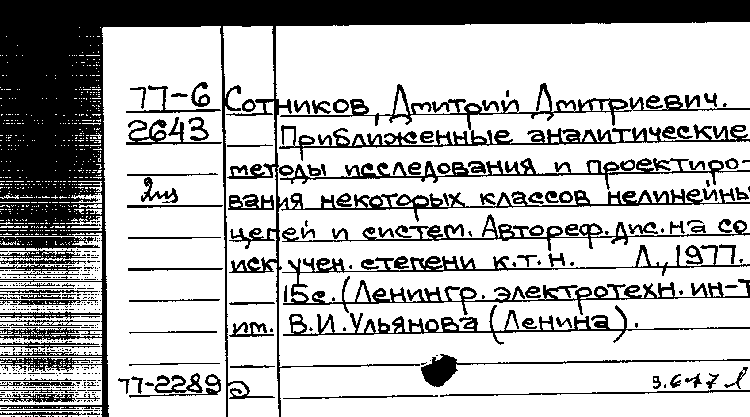 77-6 Сотников, Дмитрий Дмитриевич.
2643 Приближенные аналитические
методы исследования и проектиро-
вания некоторых классов нелинейны
цепей и систем. Автореф. дис. на со
иск. учен. степени к.т.н. Л., 1977.
15с. (Ленингр. электротехн. ин-т
им. В.И.Ульянова (Ленина).
77-2289